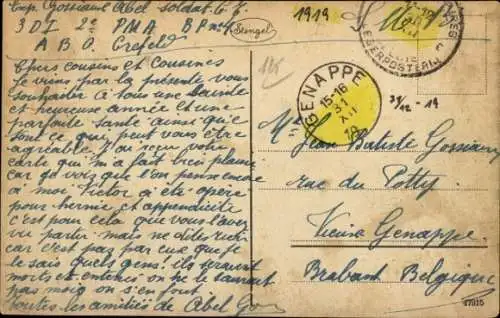 Exp. Gossiaux Abel soldat
3 D I 2e P M A B P no 4
A. B. O. Crefeld
Stengel
1919
LEGERPOSTERIJ
Chers cousins et Cousines
Je viens par la présente vous
souhaiter à tous une sainte
et heureuse année et une
parfaite santé ainsi que
tout ce qui peut vous être
agréable J'ai reçu votre
carte qui m'a fait bien plaisir
car je vois que l'on pense encore
à moi. Victor a été opéré
pour hernie et appendicite
c'est pour cela que vous l'avez
vu partir mais ne dites rien
car c'est pas par eux que je
le sais quels gens! ils seraient
morts et enterrés on ne le saurait
pas moi on s'en fout
toutes les amitiés de Abel Gos
GENAPPE
15-16
31
XII
19
31/12 - 19
Mr Jean Batiste Gossiaux
rue du Potty
Vieux Genappe
Brabant Belgique
17915